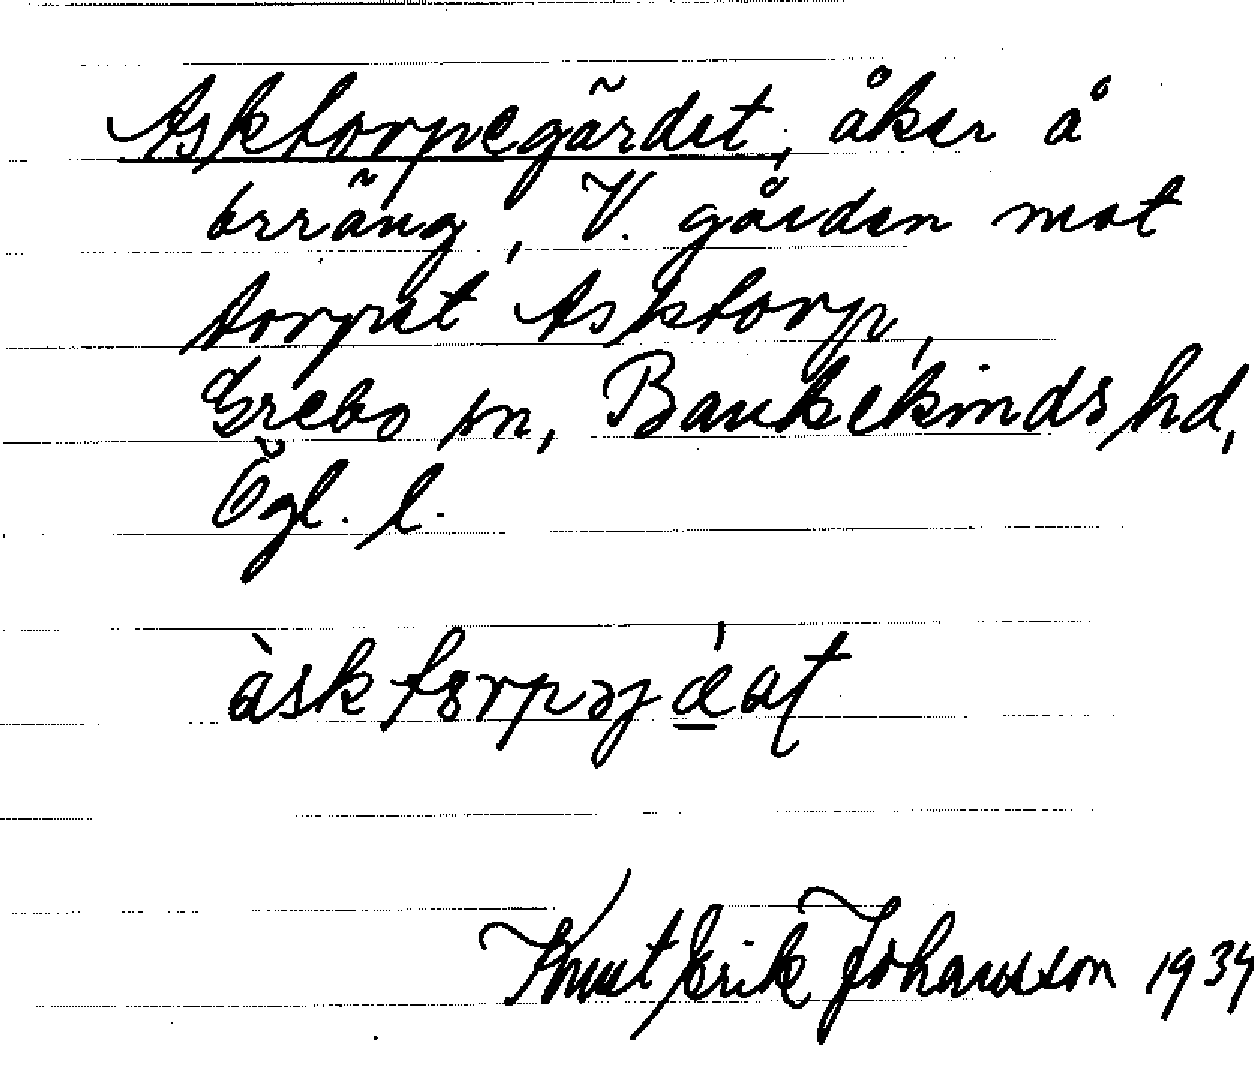 Asktorpegärdet, åker å
Erräng, V. gården mot
torpet Asktorp,
Grebo sn, Bankekinds hd,
Ögl. l.
àsktorpəjǽat
Knut Erik Johansson 1934